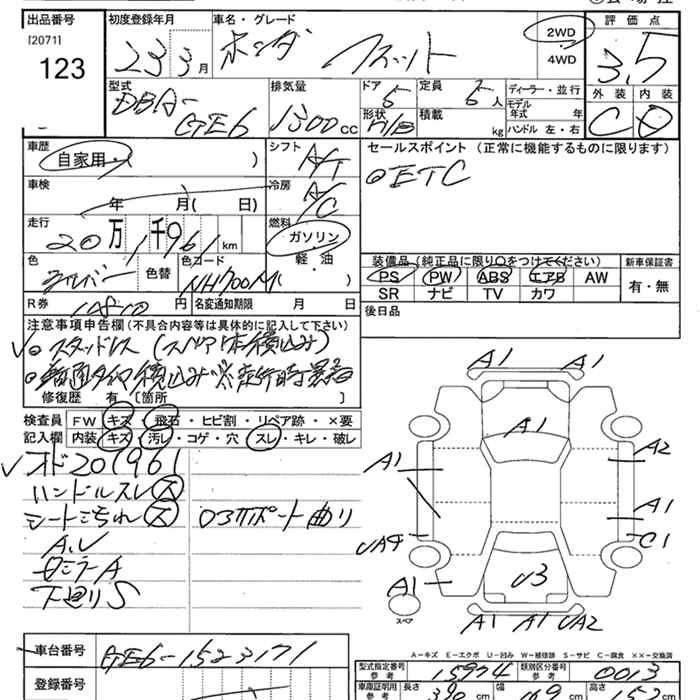 出品番号 初度登録年月 車名・グレード 2WD 4WD 評価点
[2071]
123 23 3月 ホンダ フィット 3.5
型式 DBA-GE6 排気量 1300cc ドア 5 定員 5人 ディーラー・並行
形状 H/B 積載 kg モデル年式 年 ハンドル 左・右
外装 C 内装 D
車歴 自家用( ) シフト A/T セールスポイント (正常に機能するものに限ります)
車検 年 月( 日) 冷房 A/C ○ETC
走行 20万1千961km 燃料 ガソリン 軽・油 ( )
色 シルバー 色替 色コード NH700M
装備品(純正品に限り○をつけてください) 新車保証書
PS PW ABS エアB AW 有・無
SR ナビ TV カワ
R券 円 名変通知期限 月 日 後日品
注意事項申告欄(不具合内容等は具体的に記入して下さい)
○スタッドレス(スペア1本積込み)
修復歴 有 〔箇所 〕
検査員記入欄 FW キズ・飛石・ヒビ割・リペア跡・×要
内装 キズ・汚レ・コゲ・穴・スレ・キレ・破レ
オド201961
ハンドルスレ大
シートこちれ大
A,U
下廻りS
A1 A1
A1
A1 A2
A1
UA4 C1
A1 U3
スペア
A1 A1 UA2
A-キズ E-エクボ U-凹み W-補修跡 S-サビ C-腐食 ××-交換済
車台番号 GE6-1523171
登録番号
型式指定番号 参考 15974 類別区分番号 参考 0013
車庫証明用 参考 長さ 390cm 幅 169cm 高さ 152cm